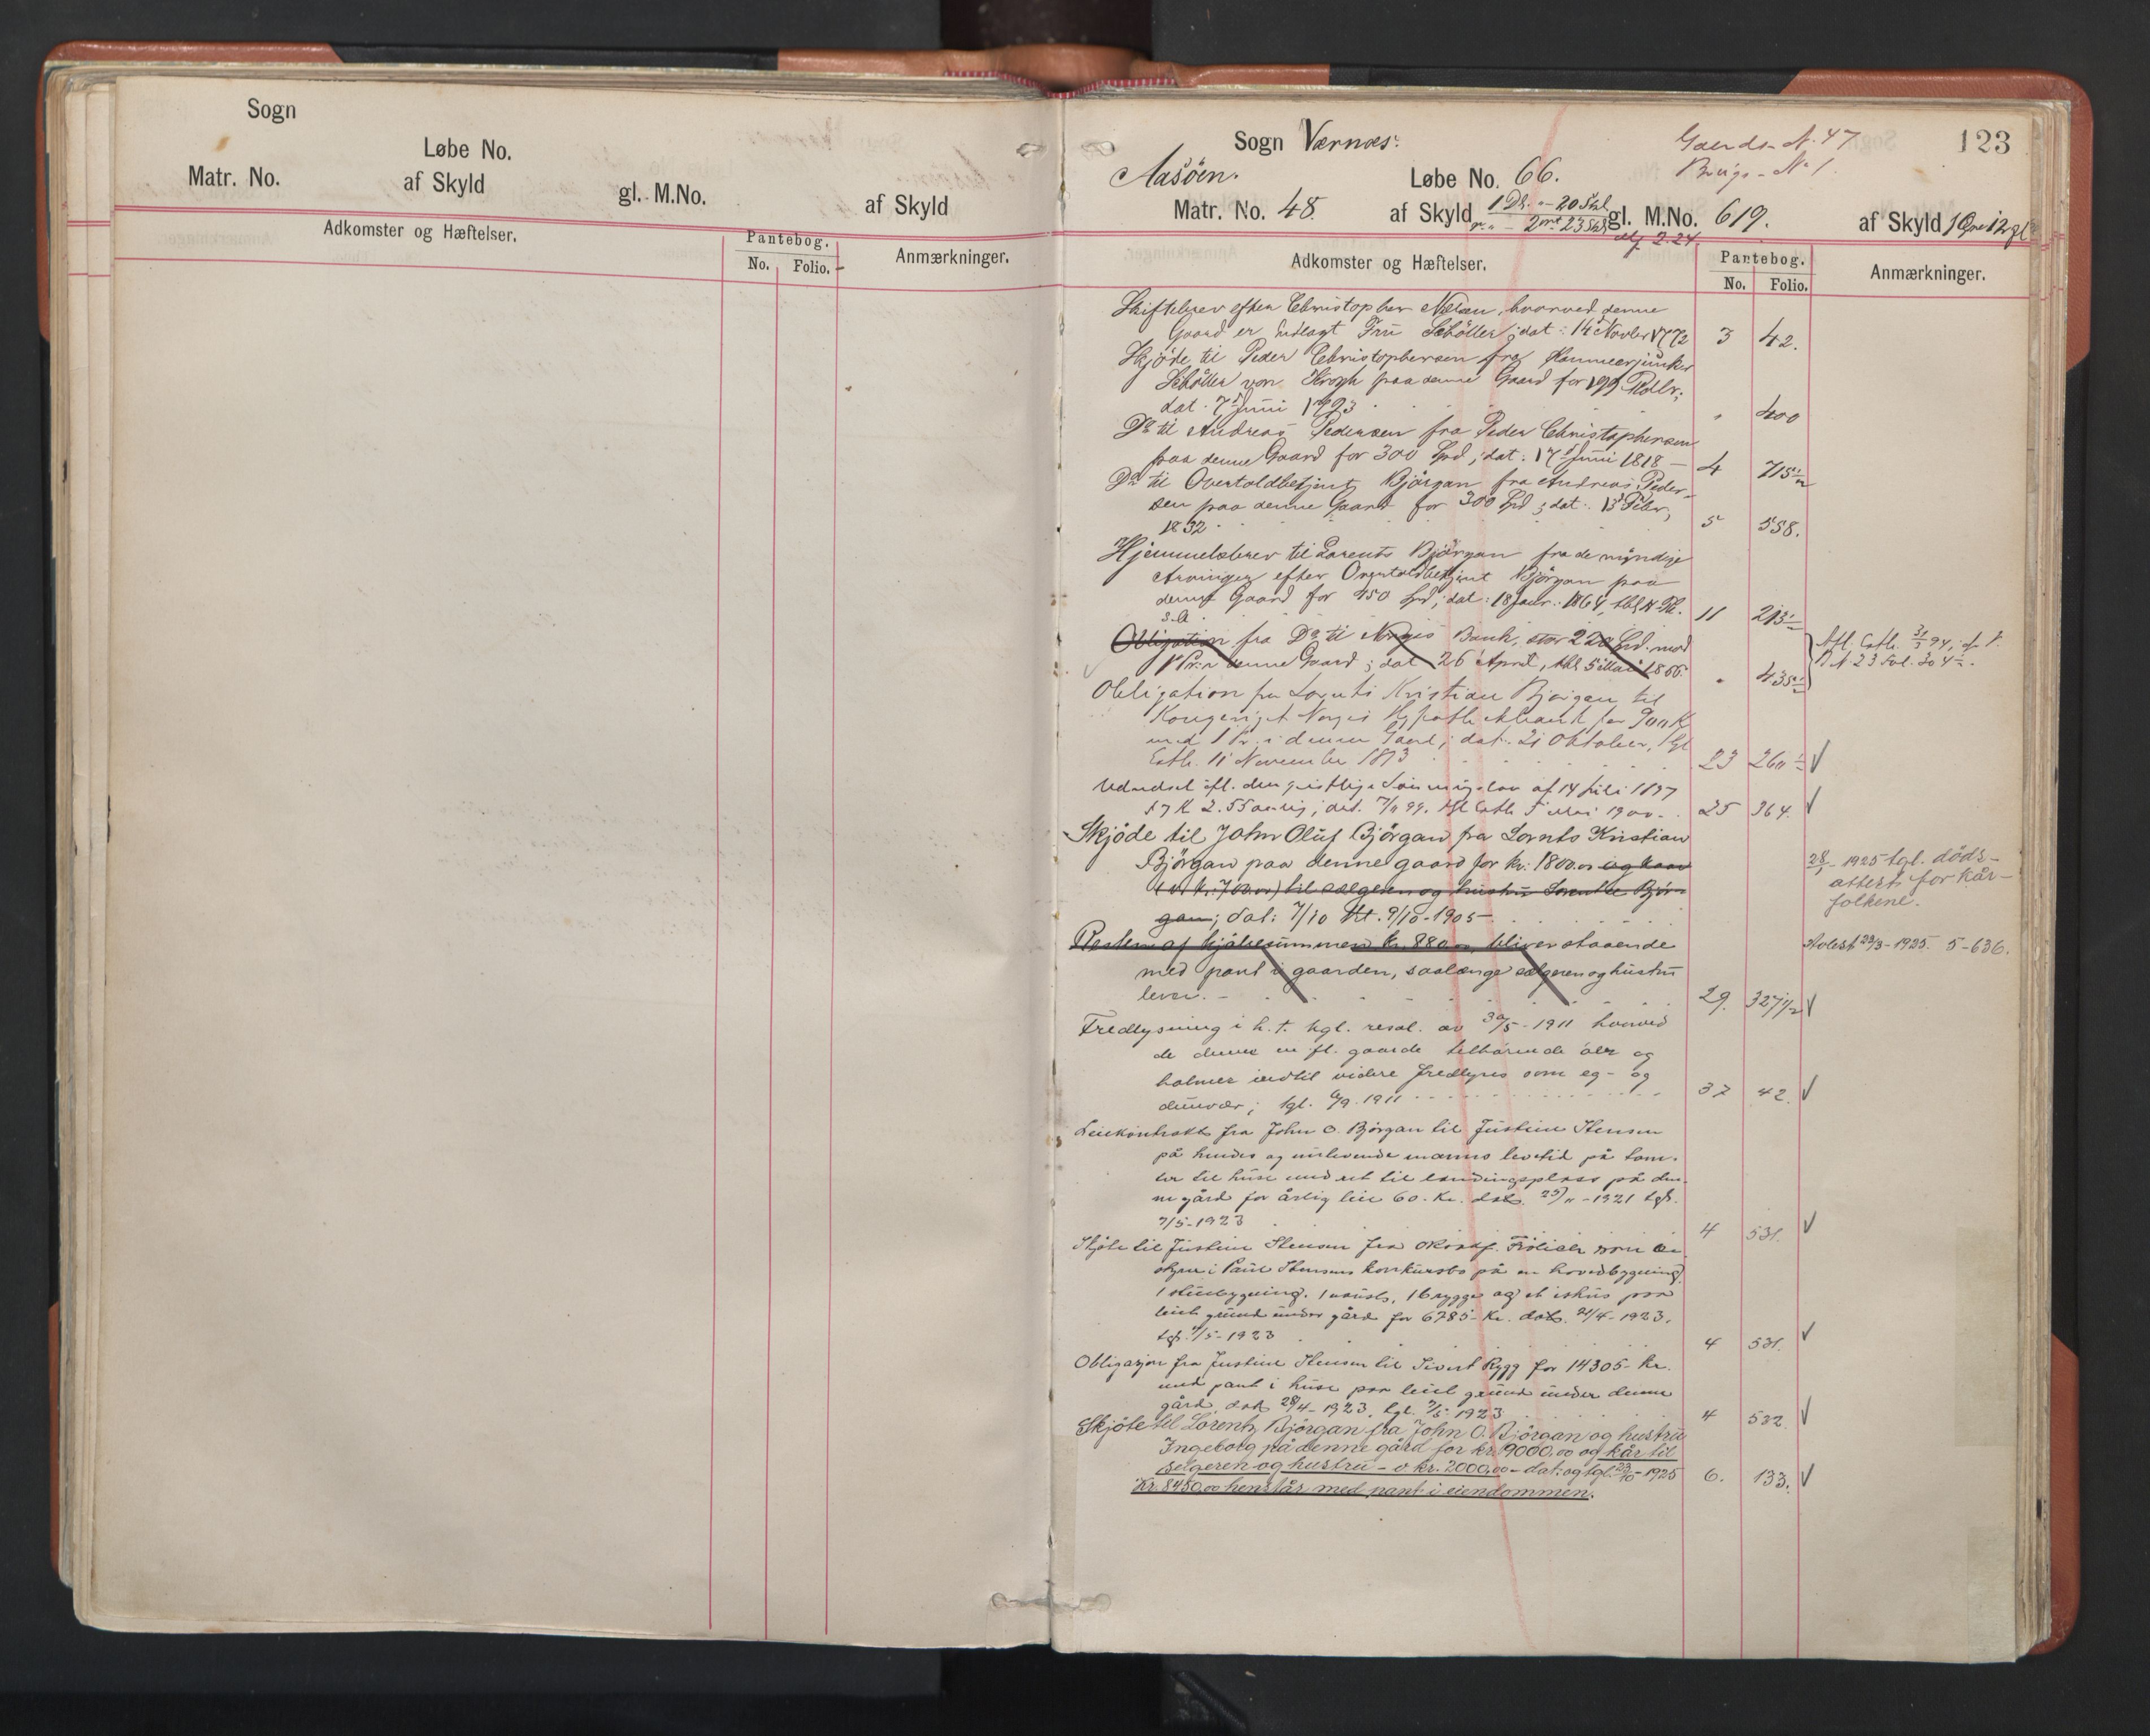 Sogn
Løbe No.
Matr. No.
af Skyld
gl. M.No.
af Skyld
Adkomster og Hæftelser.
Pantebog.
No.
Folio.
Anmærkninger.
123
Gaards-N. 47
Brugs-N 1.
Sogn Værnæs:
Aasöen.
Løbe No. 66.
Matr. No. 48.
af Skyld 1 Dl. " - 20 Skl
2 mt 23 Skl
gl. M.No. 619.
2.24
af Skyld 1 Øre 12 gl
Adkomster og Hæftelser.
Pantebog.
No.
Folio.
Anmærkninger.
Skiftebrev efter Christopher Nelau, hvorved denne
Gaard er udlagt Fru Schöller; dat: 14 Novbr 1772 3 42.
Skjöde til Peder Christophersen fra Kammerjunker
Schöller von Krogh paa denne Gaard for 199 Rdlr.;
dat. 7 Juni 1793 " 400
Do til Andreas Pedersen fra Peder Christophersen
paa denne Gaard for 300 Spd; dat: 17 Juni 1818 - 4 715
Do til Overtoldbetjent Björgan fra Andreas Peder-
sen paa denne Gaard for 300 Spd; dat: 13 Febr,
1832 5 558.
Hjemmelsbrev til Lorents Björgan fra de myndige
Arvinger efter Overtoldbetjent Björgan paa
denne Gaard for 450 Spd; dat: 18 Janr. 1864,
s.A. 11 213
Obligation fra Do til Norges Bank, stor 220 Spd. mod
1 Pr: i denne Gaard; dat 26 April, 5 Mai 1866. " 435
Afl. Extb. 31/3 94, cf. P.
B N. 23 Fol. 304
Obligation fra Lorents Kristian Björgan til
Kongeriget Norges Hypothekbank for 900 K
med 1 Pr. i denne Gaard; dat. 21 Oktober, tgl
Extb. 11 November 1893 23 260
Udendsel ifl. den geistlige Lönningslov af 14 Juli 1897
17 K 2.55 aarlig; dat. 7/11 99. tgl Extb 5 Mai 1900. 25 364.
Skjöde til John Oluf Björgan fra Lornts Kristian
Björgan paa denne gaard for kr. 1800.00 og kaar
(v. kr. 700.00) til sælgeren og hustru Lorentse Björ-
gan; dat: 7/10 tgl. 9/10-1905 -
28/ - 1925 tgl. döds-
attest for kår-
folkene.
Resten af kjöbesummen kr. 880.00 bliver staaende
med pant i gaarden, saalænge sælgeren og hustru
lever. - 29. 327 1/2
Avlest 23/3-1925. 5-636.
Fredlysning i h. t. kgl. resol. av 30/5-1911 hvorved
de denne m. fl. gaarde tilhörende öer og
holmer indtil videre fredlyses som eg- og
dunvær; tgl. 6/9. 1911 37 42.
Leiekontrakt fra John O. Björgan til Justine Stensen
på hendes og nulevende manns levetid på tom-
ter til huse med ret til landingsplass på den-
ne gård for årlig leie 60.- Kr. dat. 25/11-1921 tgl.
7/5-1923 4 531.
Skjöte til Justine Stensen fra Frölich som be-
styrer i Paul Stensens konkursbo på en hovedbygning,
1 stuebygning, 1 naust, 1 brygge og et ishus paa
leiet grund under gård for 6785- Kr. dat. 21/4-1923.
tgl. 7/5-1923 4 531.
Obligasjon fra Justine Stensen til Sivert Rygg for 14305- kr.
med pant i huse paa leiet grund under denne
gård. dat 28/4-1923, tgl. 7/5-1923 4 532.
Skjöte til Lorentz Björgan fra John O. Björgan og hustru
Ingeborg på denne gård for kr. 9000,00 og kår til
selgeren og hustru - v kr. 2000,00 - dat: og tgl. 23/5-1925 6. 133.
Kr. 8450,00 henstår med pant i eiendommen.